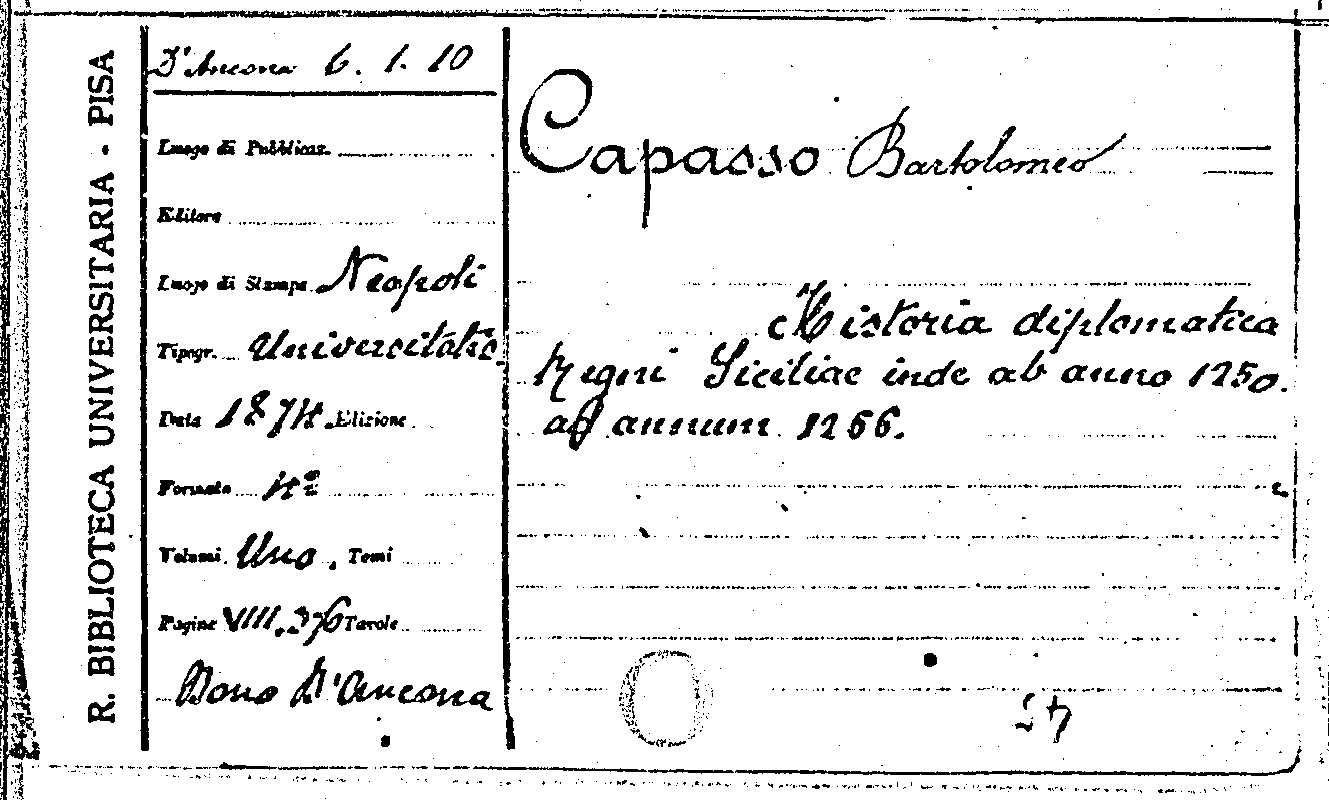 R. BIBLIOTECA UNIVERSITARIA - PISA
D'Ancona 6. 1. 10
Luogo di Pubblicaz.
Editore
Luogo di Stampa Neapoli
Tipogr. Universitatis
Data 1874. Edizione
Formato 4º
Volumi Uno. Tomi
Pagine VIII.376 Tavole
Dono D'Ancona
Capasso Bartolomeo
Historia diplomatica
Regni Siciliae inde ab anno 1250.
ad annum 1266.